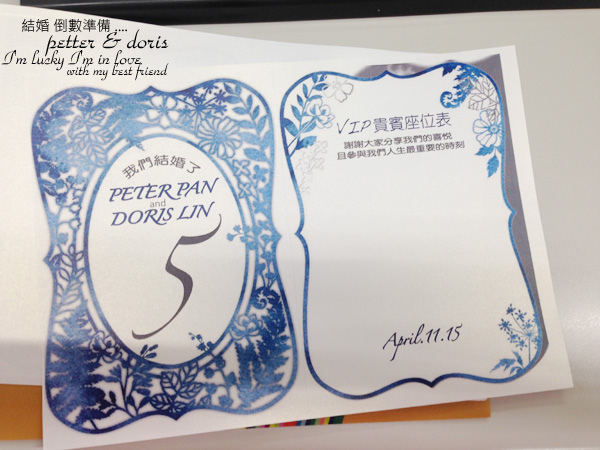 結婚 倒數準備 ....
petter & doris
I'm lucky I'm in love
with my best friend
我們結婚了
PETER PAN
and
DORIS LIN
5
VIP貴賓座位表
謝謝大家分享我們的喜悅
且參與我們人生最重要的時刻
April.11.15